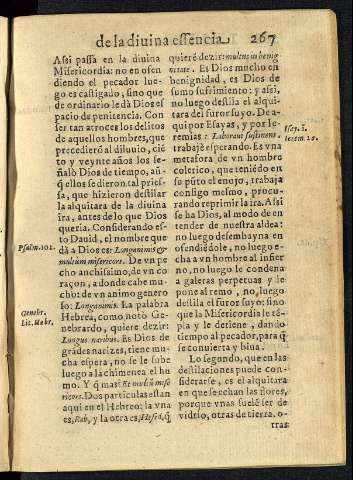 de la diuina essencia 267
Assi passa en la diuina
Misericordia: no en ofen
diendo el pecador lue-
go es castigado, sino que
de ordinario le dà Dios es
pacio de penitencia. Con
ser tan atroces los delitos
de aquellos hombres, que
precedierõ al diluuio, ciẽ
to y veynte años los se-
ñalò Dios de tiempo, aũ
ellos se dieron tal pries-
sa, que hizieron destilar
la alquitara de la diuina
ira, antes de lo que Dios
queria. Considerando es-
to Dauid, el nombre que
Psalm.102.
dà a Dios es: Longanimis &
multùm misericors. De vn pe
cho anchissimo, de vn co
raçon, a donde cabe mu-
cho: de vn animo genero
so: Longanimis. La palabra
Genebr.
Lic. Hebr.
Hebrea, como notò Ge-
nebrardo, quiere dezir:
Longus naribus. Es Dios de
grãdes narizes, tiene mu-
cha espera, no se le sube
luego a la chimenea el hu
mo. Y q̃ mas? Et multũ mise
ricors. Dos particulas estan
aqui en el Hebreo: la vna
es, Rab, y la otra es, Hesed, q̃
quiere dezir: multus in benig
nitate. Es Dios mucho en
benignidad, es Dios de
sumo sufrimiento: y assi,
no luego destila el alqui-
tara del furor suyo. De a-
qui por Esayas, y por Ie-
remias: Laboraui sustinens.
trabajè esperando. Es vna
metafora de vn hombre
colerico, que teniẽdo en
su pũto el enojo, trabaja
consigo mesmo, procu-
rando reprimir la ira. Assi
se ha Dios, al modo de en
tender de nuestra aldea:
no luego desembayna en
ofendiẽdole, no luego e-
cha a vn hombre al infier
no, no luego le condena
a galeras perpetuas y le
pone al remo, no, luego
destila el furor suyo: sino
que la Misericordia le tẽ-
pla y le detiene, dando
tiempo al pecador, para q̃
se conuierta y biua.
Lo segundo, que en las
destilaciones puede con-
siderarse, es el alquitara
en que se echan las flores,
porque vnas suelẽ ser de
vidrio, otras de tierra, o-
tras